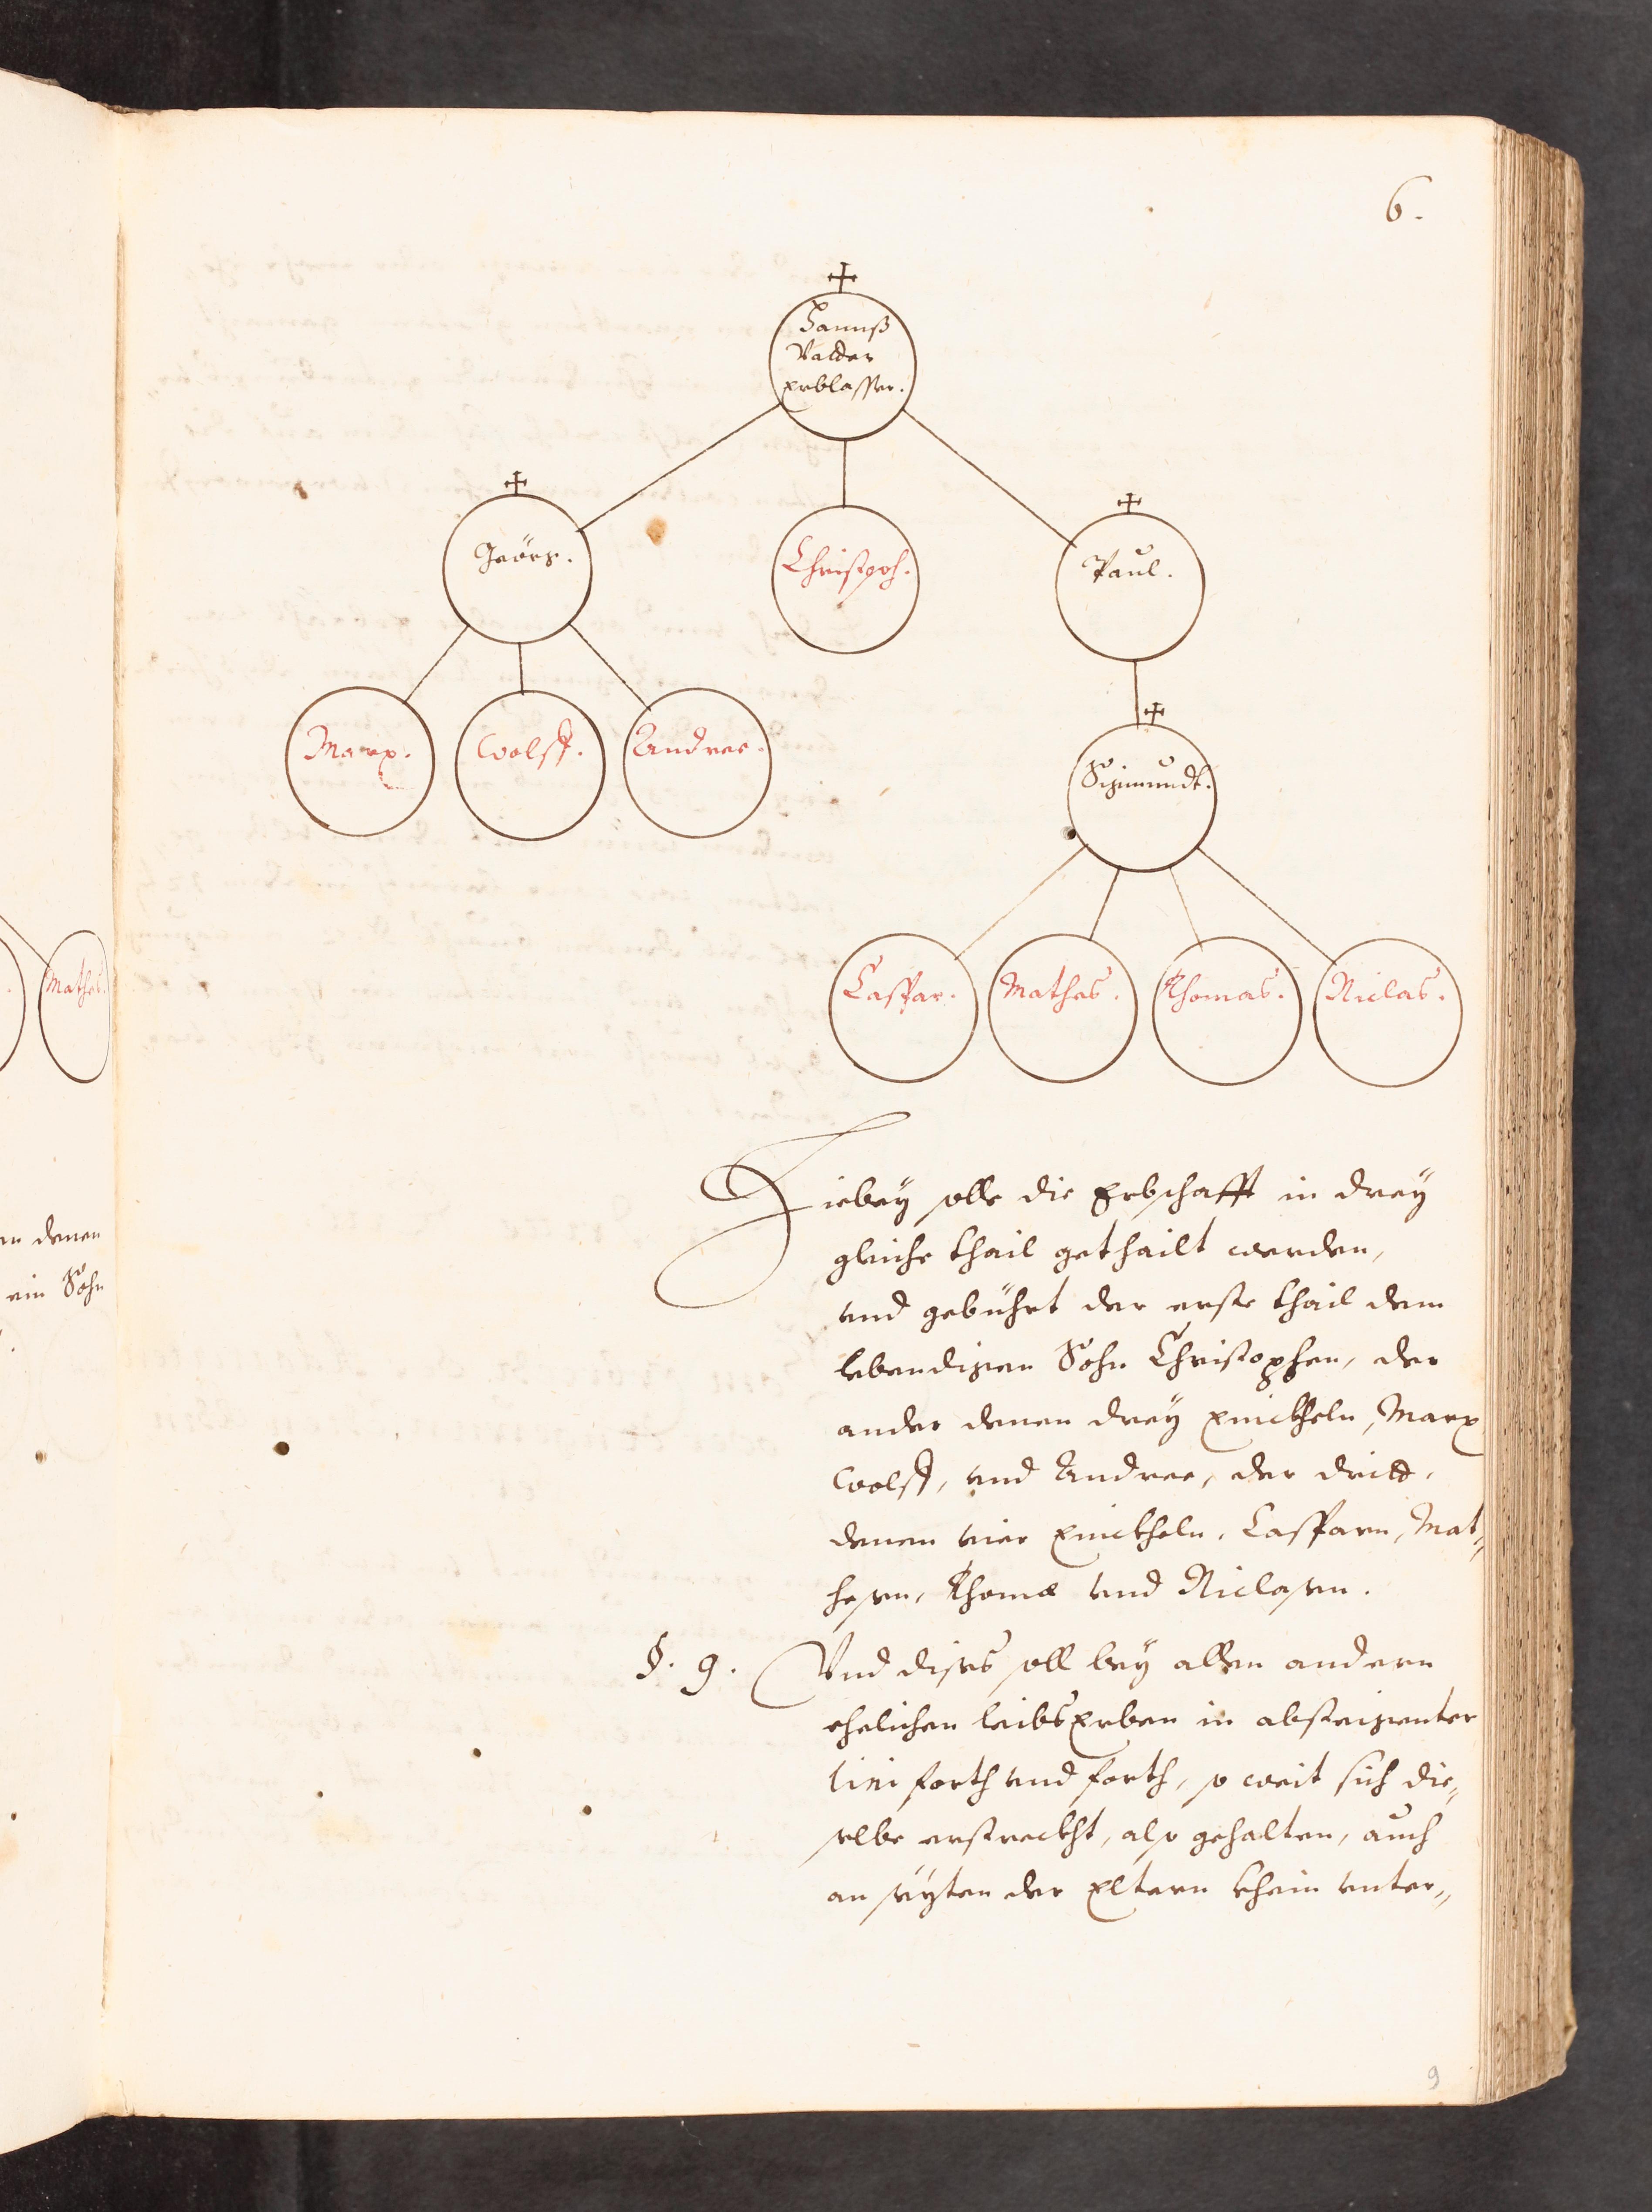 6.
Hannß
Vatter
Erblasser.
Geörg.
Christoph.
Paul.
Marx.
Wolff.
Andree.
Sigmundt.
Caspar.
Mathes.
Thomas.
Niclas.
Mathes.
Hiebeÿ solle die Erbschafft in dreÿ
gleiche thail gethailt werden,
vnd gebührt der erste thail dem
lebendigen Sohn Christophen, der
ander denen dreÿ Enickheln, Marx
Wolff, vnd Andree, der dritt,
denen vier Enickheln, Casparn, Mat„
hesen, Thomæ vnd Niclasen.
§. 9. Vnd dises soll beÿ allen andern
ehelichen leibsErben in absteigenter
Lini forth vnd forth, so weit sich die„
selbe erstreckht, also gehalten, auch
an seÿten der Eltern khein vnter„
en denen
ein Sohn
9